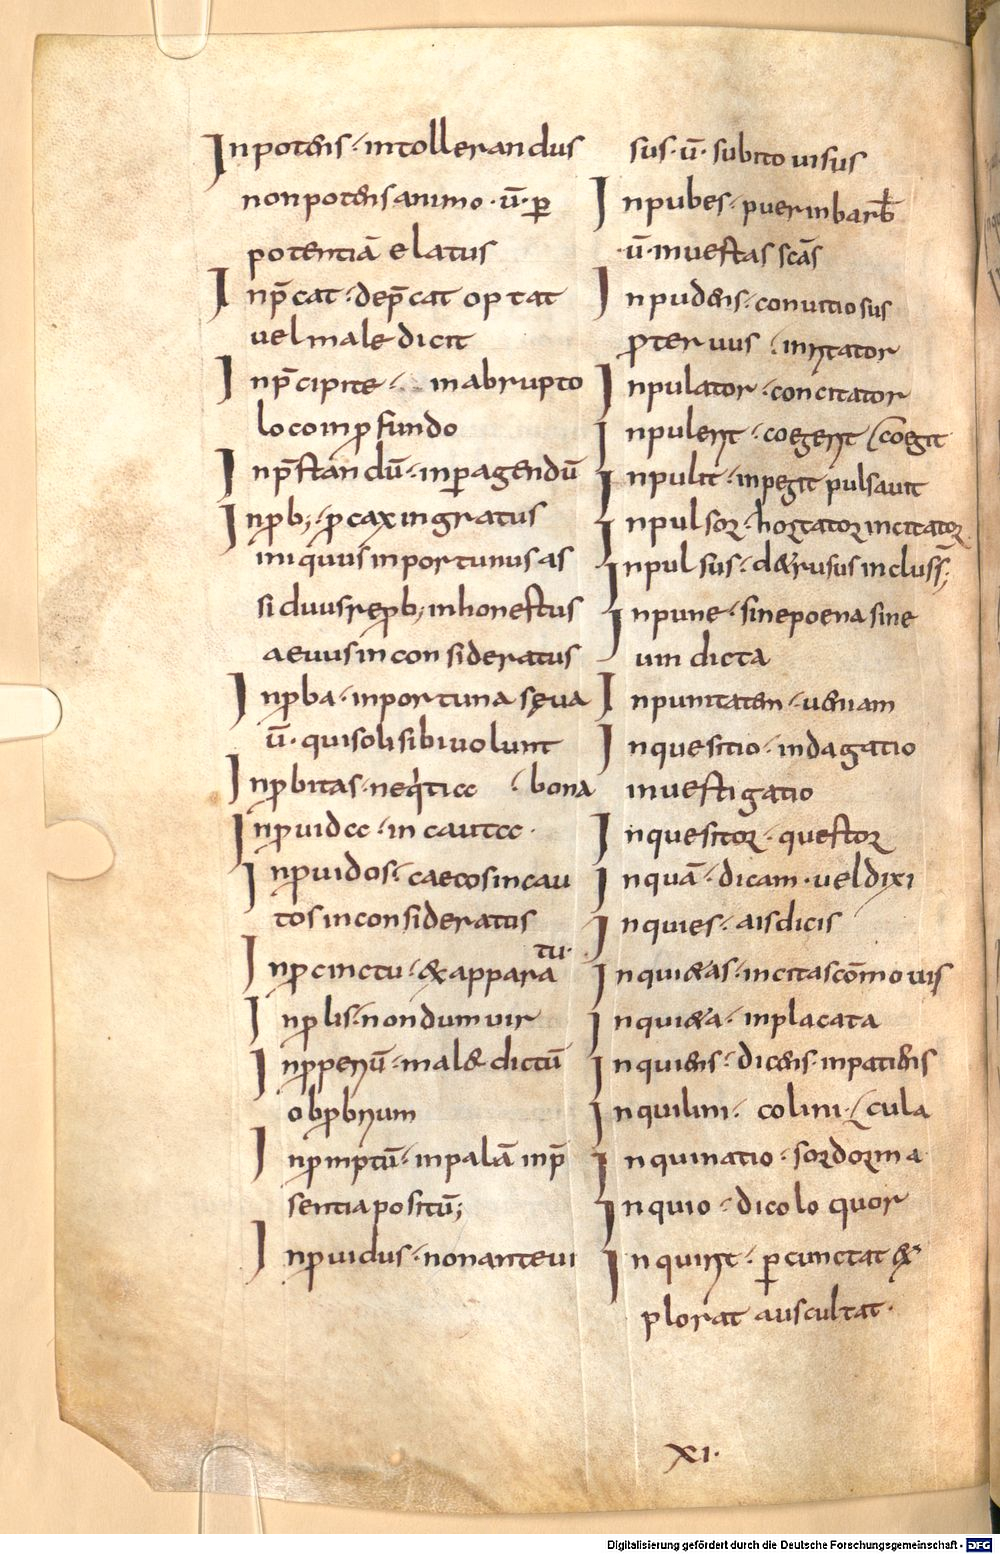 Inpotens · intollerandus
nonpotens animo · ū · ꝑ
potentiā elatus
Inp̄cat · dep̄cat optat
uel male dicit
Inp̄cipite · in abrupto
loco in ꝓfundo
Inp̄standū · inꝑagendū
Inꝓb; · ꝓcax ingratus
iniquus inportunus as
siduus reꝓb; inhonestus
aeuus inconsideratus
Inꝓba · inportuna sęua
ū · qui soli sibi uolunt
Inꝓbitas · neq'ticc bona
Inꝓuidcc · in cautcc ·
Inꝓuidos · caecos incau
tos inconsideratus
tu ·
Inꝓcinctu · & appara
Inꝓlis · nondum uir
Inꝓperiū · male dictū
obꝓbrium
Inꝓmptū · inpalā inp̄
sentia positū;
Inꝓuidus · non ante ui
sus · ū · subito uisus
Inpubes · puer inbarb̄
· ū · inuestas scās
Inpudens · conuitiosus
ꝓteruus inritator
Inpulator · concitator
Inpulerit · coegerit coegit
Inpulit · inpegit pulsauit
Inpulsor · hortator incitator
Inpulsus · detrusus inclus;
Inpune · sine poena sine
uindicta
Inpunitatem · ueniam
Inquesitio · indagatio
inuestigatio
Inquesitor · questor
Inquā · dicam · uel dixi
Inquies · ais dicis
Inqui&as · incitas cōmouis
Inqui&a · inplacata
Inquiens · dicens inpatiens
Inquilini · colini · cula
Inquinatio · sordorma
Inquio · dico loquor
Inquirit · ꝑcunctat &
plorat auscultat ·
XI ·
Digitalisierung gefördert durch die Deutsche Forschungsgemeinschaft - DFG